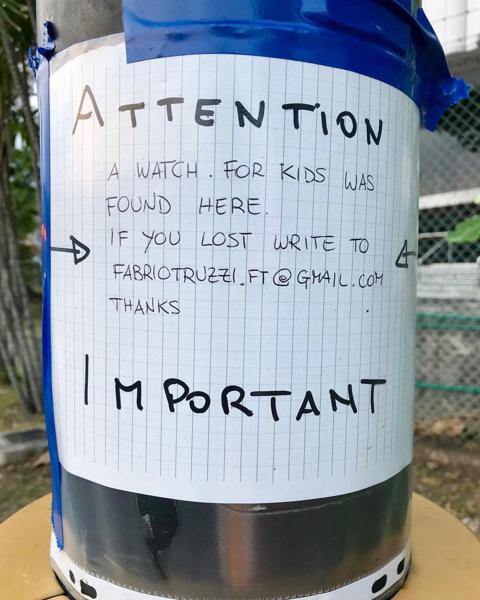 ATTENTION
A WATCH. FOR KIDS WAS
FOUND HERE.
IF YOU LOST WRITE TO
FABRIOTRUZZI.FT@GMAIL.COM
THANKS
IMPORTANT